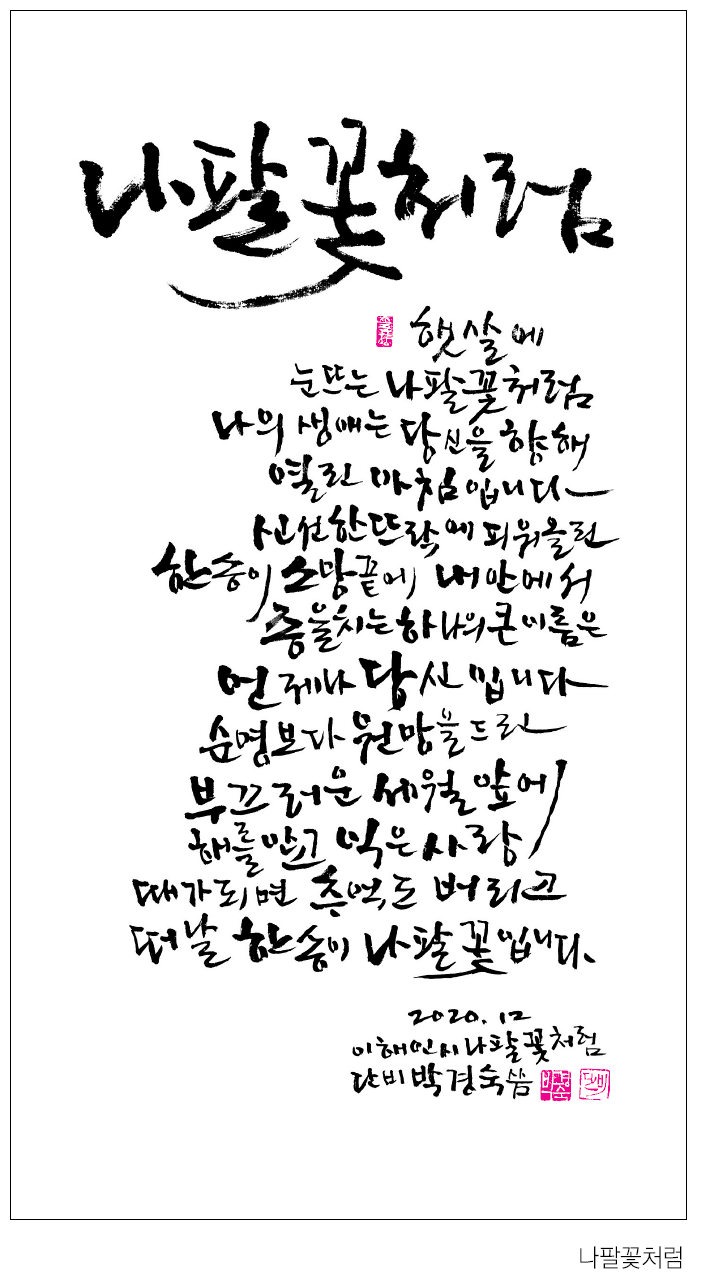 나팔꽃처럼
햇살에
눈뜨는 나팔꽃처럼
나의 생애는 당신을 향해
열린 아침입니다
신선한 뜨락에 피워올린
한송이 소망 끝에 내 안에서
종을 치는 하나의 큰 이름은
언제나 당신입니다
순명보다 원망을 드린
부끄러운 세월 앞에
해를 안고 익은 사랑
때가 되면 추억도 버리고
떠날 한송이 나팔꽃입니다.
2020. 12
이해인 시 나팔꽃처럼
단비 박경숙 씀
박경숙
단비
나팔꽃처럼